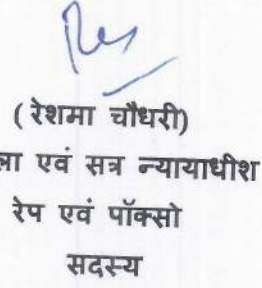 (रेशमा चौधरी)
ला एवं सत्र न्यायाधीश
रेप एवं पॉक्सो
सदस्य